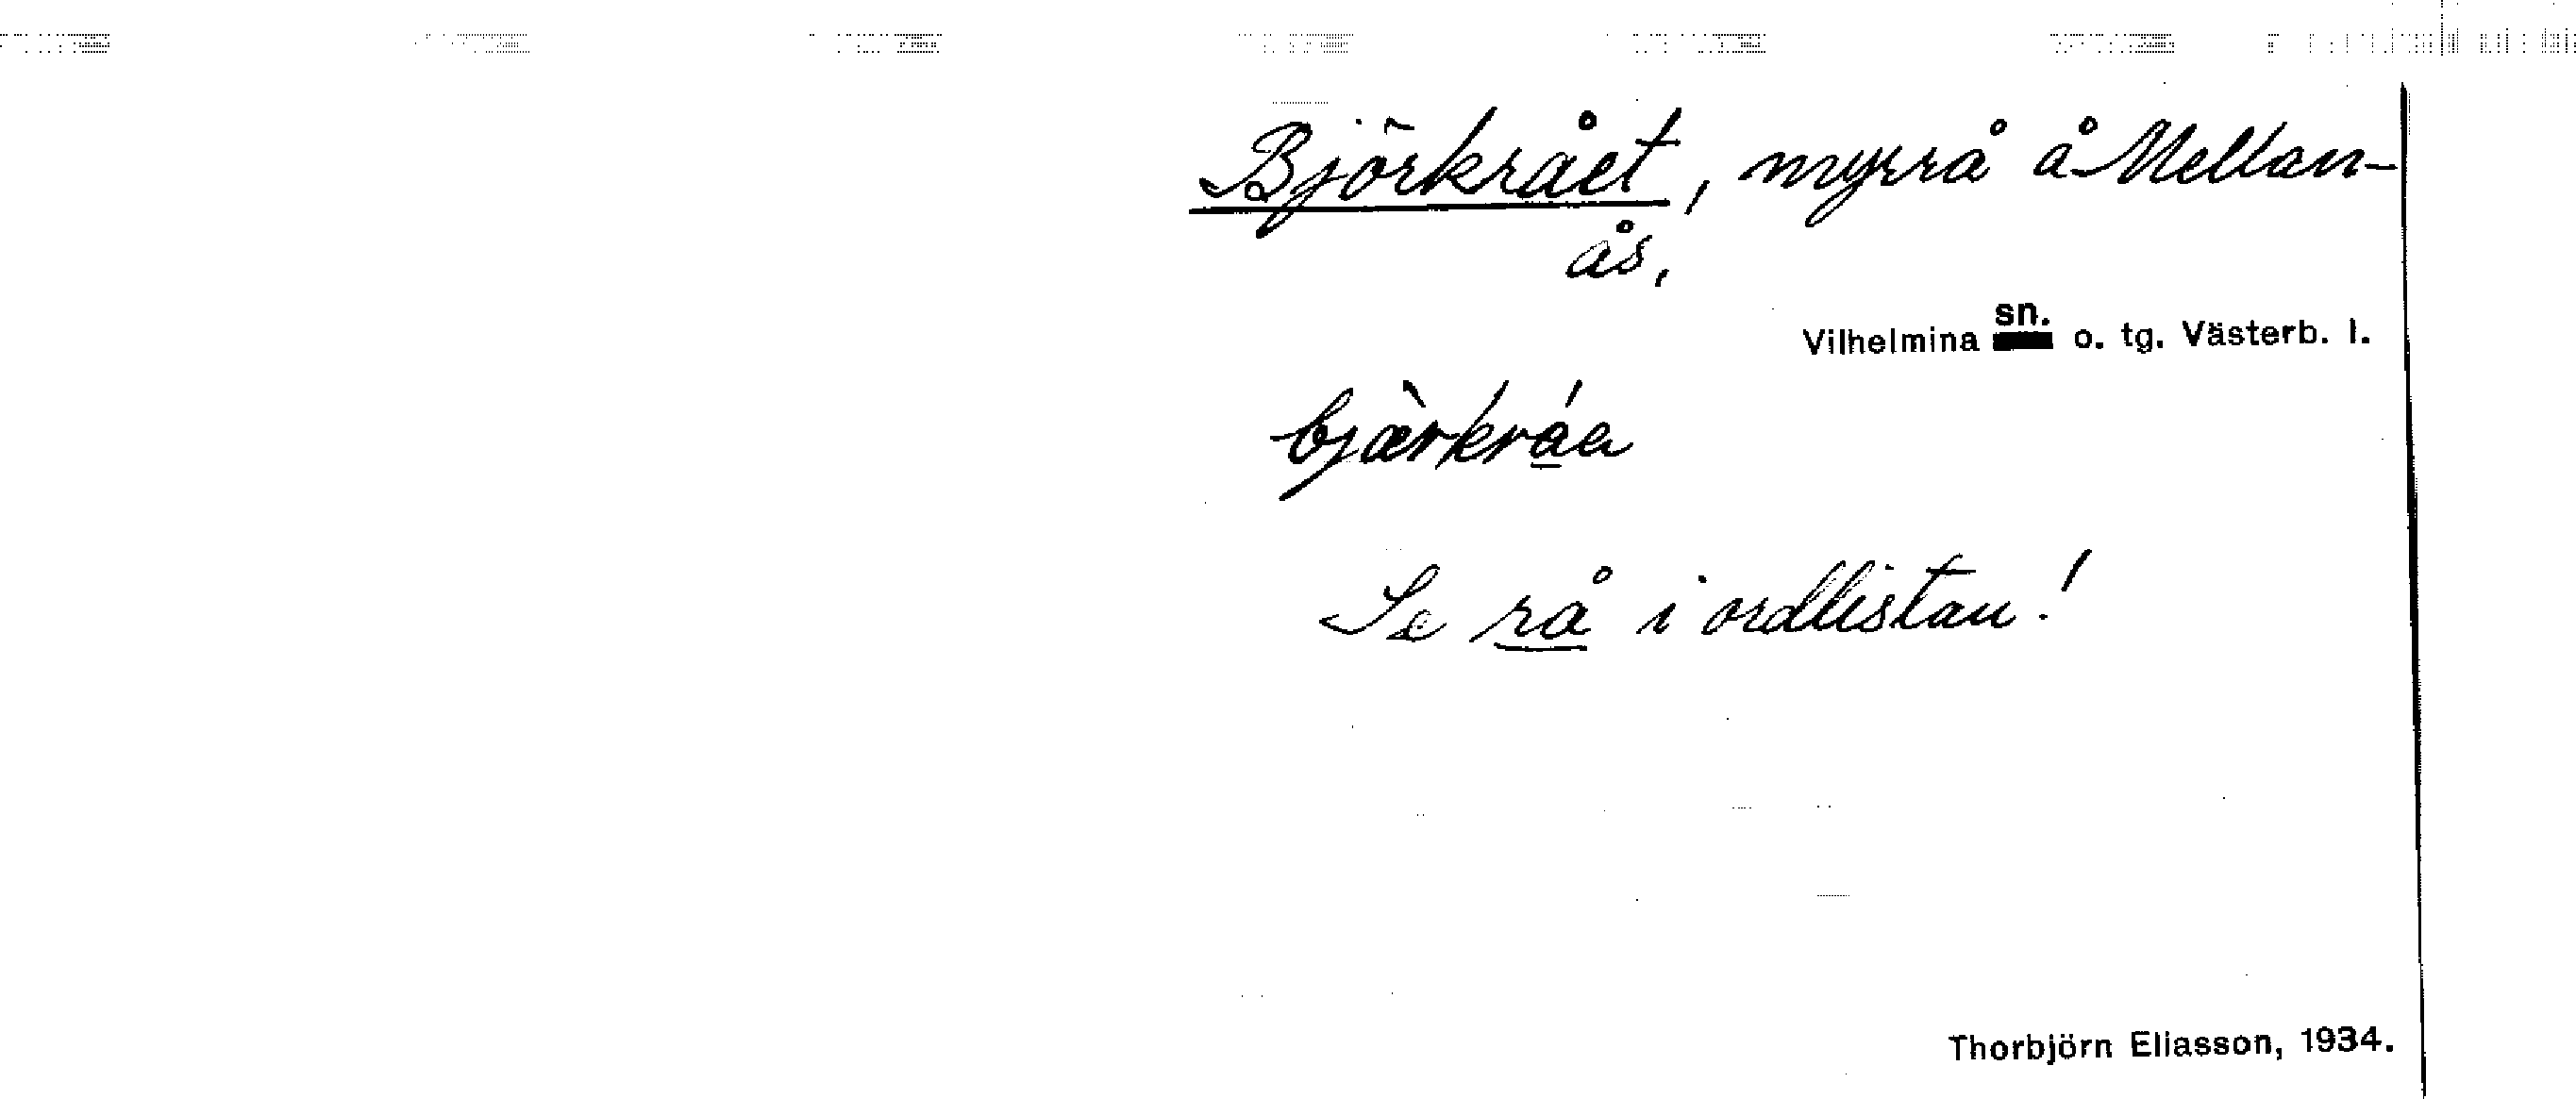 Björkrået, myrrå å Mellan-
ås,
Vilhelmina sn. o. tg. Västerb. l.
bjæ̀rkrá̲a
Se rå i ordlistan!
Thorbjörn Eliasson, 1934.